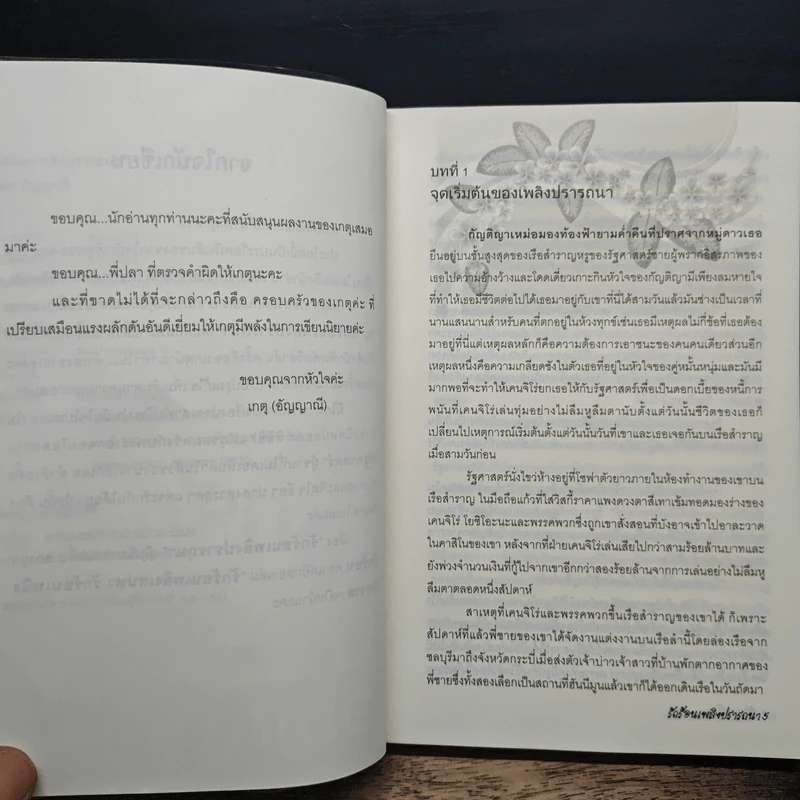 ขอบคุณ...นักอ่านทุกท่านนะคะที่สนับสนุนผลงานของเกตุเสมอ
มาค่ะ
ขอบคุณ...พี่ปลา ที่ตรวจคำผิดให้เกตุนะคะ
และที่ขาดไม่ได้ที่จะกล่าวถึงคือ ครอบครัวของเกตุค่ะ ที่
เปรียบเสมือนแรงผลักดันอันดีเยี่ยมให้เกตุมีพลังในการเขียนนิยายค่ะ
ขอบคุณจากหัวใจค่ะ
เกตุ (อัญญาณี)
บทที่ 1
จุดเริ่มต้นของเพลิงปรารถนา
กัญติญาเหม่อมองท้องฟ้ายามค่ำคืนที่ปราศจากหมู่ดาวเธอ
ยืนอยู่บนชั้นสูงสุดของเรือสำราญหรูของรัฐศาสตร์ชายผู้พรากอิสรภาพของ
เธอไปความอ้างว้างและโดดเดี่ยวเกาะกินหัวใจของกัญติญามีเพียงลมหายใจ
ที่ทำให้เธอมีชีวิตต่อไปได้เธอมาอยู่กับเขาที่นี่ได้สามวันแล้วมันช่างเป็นเวลาที่
นานแสนนานสำหรับคนที่ตกอยู่ในห้วงทุกข์เช่นเธอมีเหตุผลไม่กี่ข้อที่เธอต้อง
มาอยู่ที่นี่แต่เหตุผลหลักก็คือความต้องการเอาชนะของคนคนเดียวส่วนอีก
เหตุผลหนึ่งคือความเกลียดชังในตัวเธอที่อยู่ในหัวใจของคู่หมั้นหนุ่มและมันมี
มากพอที่จะทำให้เคนจิโร่ยกเธอให้กับรัฐศาสตร์เพื่อเป็นดอกเบี้ยของหนี้การ
พนันที่เคนจิโร่เล่นทุ่มอย่างไม่ลืมหูลืมตานับตั้งแต่วันนั้นชีวิตของเธอก็
เปลี่ยนไปเหตุการณ์เริ่มต้นตั้งแต่วันนั้นวันที่เขาและเธอเจอกันบนเรือสำราญ
เมื่อสามวันก่อน
รัฐศาสตร์นั่งไขว่ห้างอยู่ที่โซฟาตัวยาวภายในห้องทำงานของเขาบน
เรือสำราญ ในมือถือแก้วใส่วิสกี้ราคาแพงดวงตาสีเทาเข้มทอดมองร่างของ
เคนจิโร่ โยชิโอะนะและพรรคพวกซึ่งถูกเขาสั่งสอนที่บังอาจเข้าไปอาละวาด
ในคาสิโนของเขา หลังจากที่ฝ่ายเคนจิโร่เล่นเสียไปกว่าสามร้อยล้านบาทและ
ยังพ่วงจำนวนเงินที่กู้ไปจากเขาอีกกว่าสองร้อยล้านจากการเล่นอย่างไม่ลืมหู
ลืมตาตลอดหนึ่งสัปดาห์
สาเหตุที่เคนจิโร่และพรรคพวกขึ้นเรือสำราญของเขาได้ ก็เพราะ
สัปดาห์ที่แล้วพี่ชายของเขาได้จัดงานแต่งงานบนเรือลำนี้โดยล่องเรือจาก
ชลบุรีมาถึงจังหวัดกระบี่เมื่อส่งตัวเจ้าบ่าวเจ้าสาวที่บ้านพักตากอากาศของ
พี่ชายซึ่งทั้งสองเลือกเป็นสถานที่ฮันนีมูนแล้วเขาก็ได้ออกเดินเรือในวันถัดมา
รักร้อนเพลิงปรารถนา 5